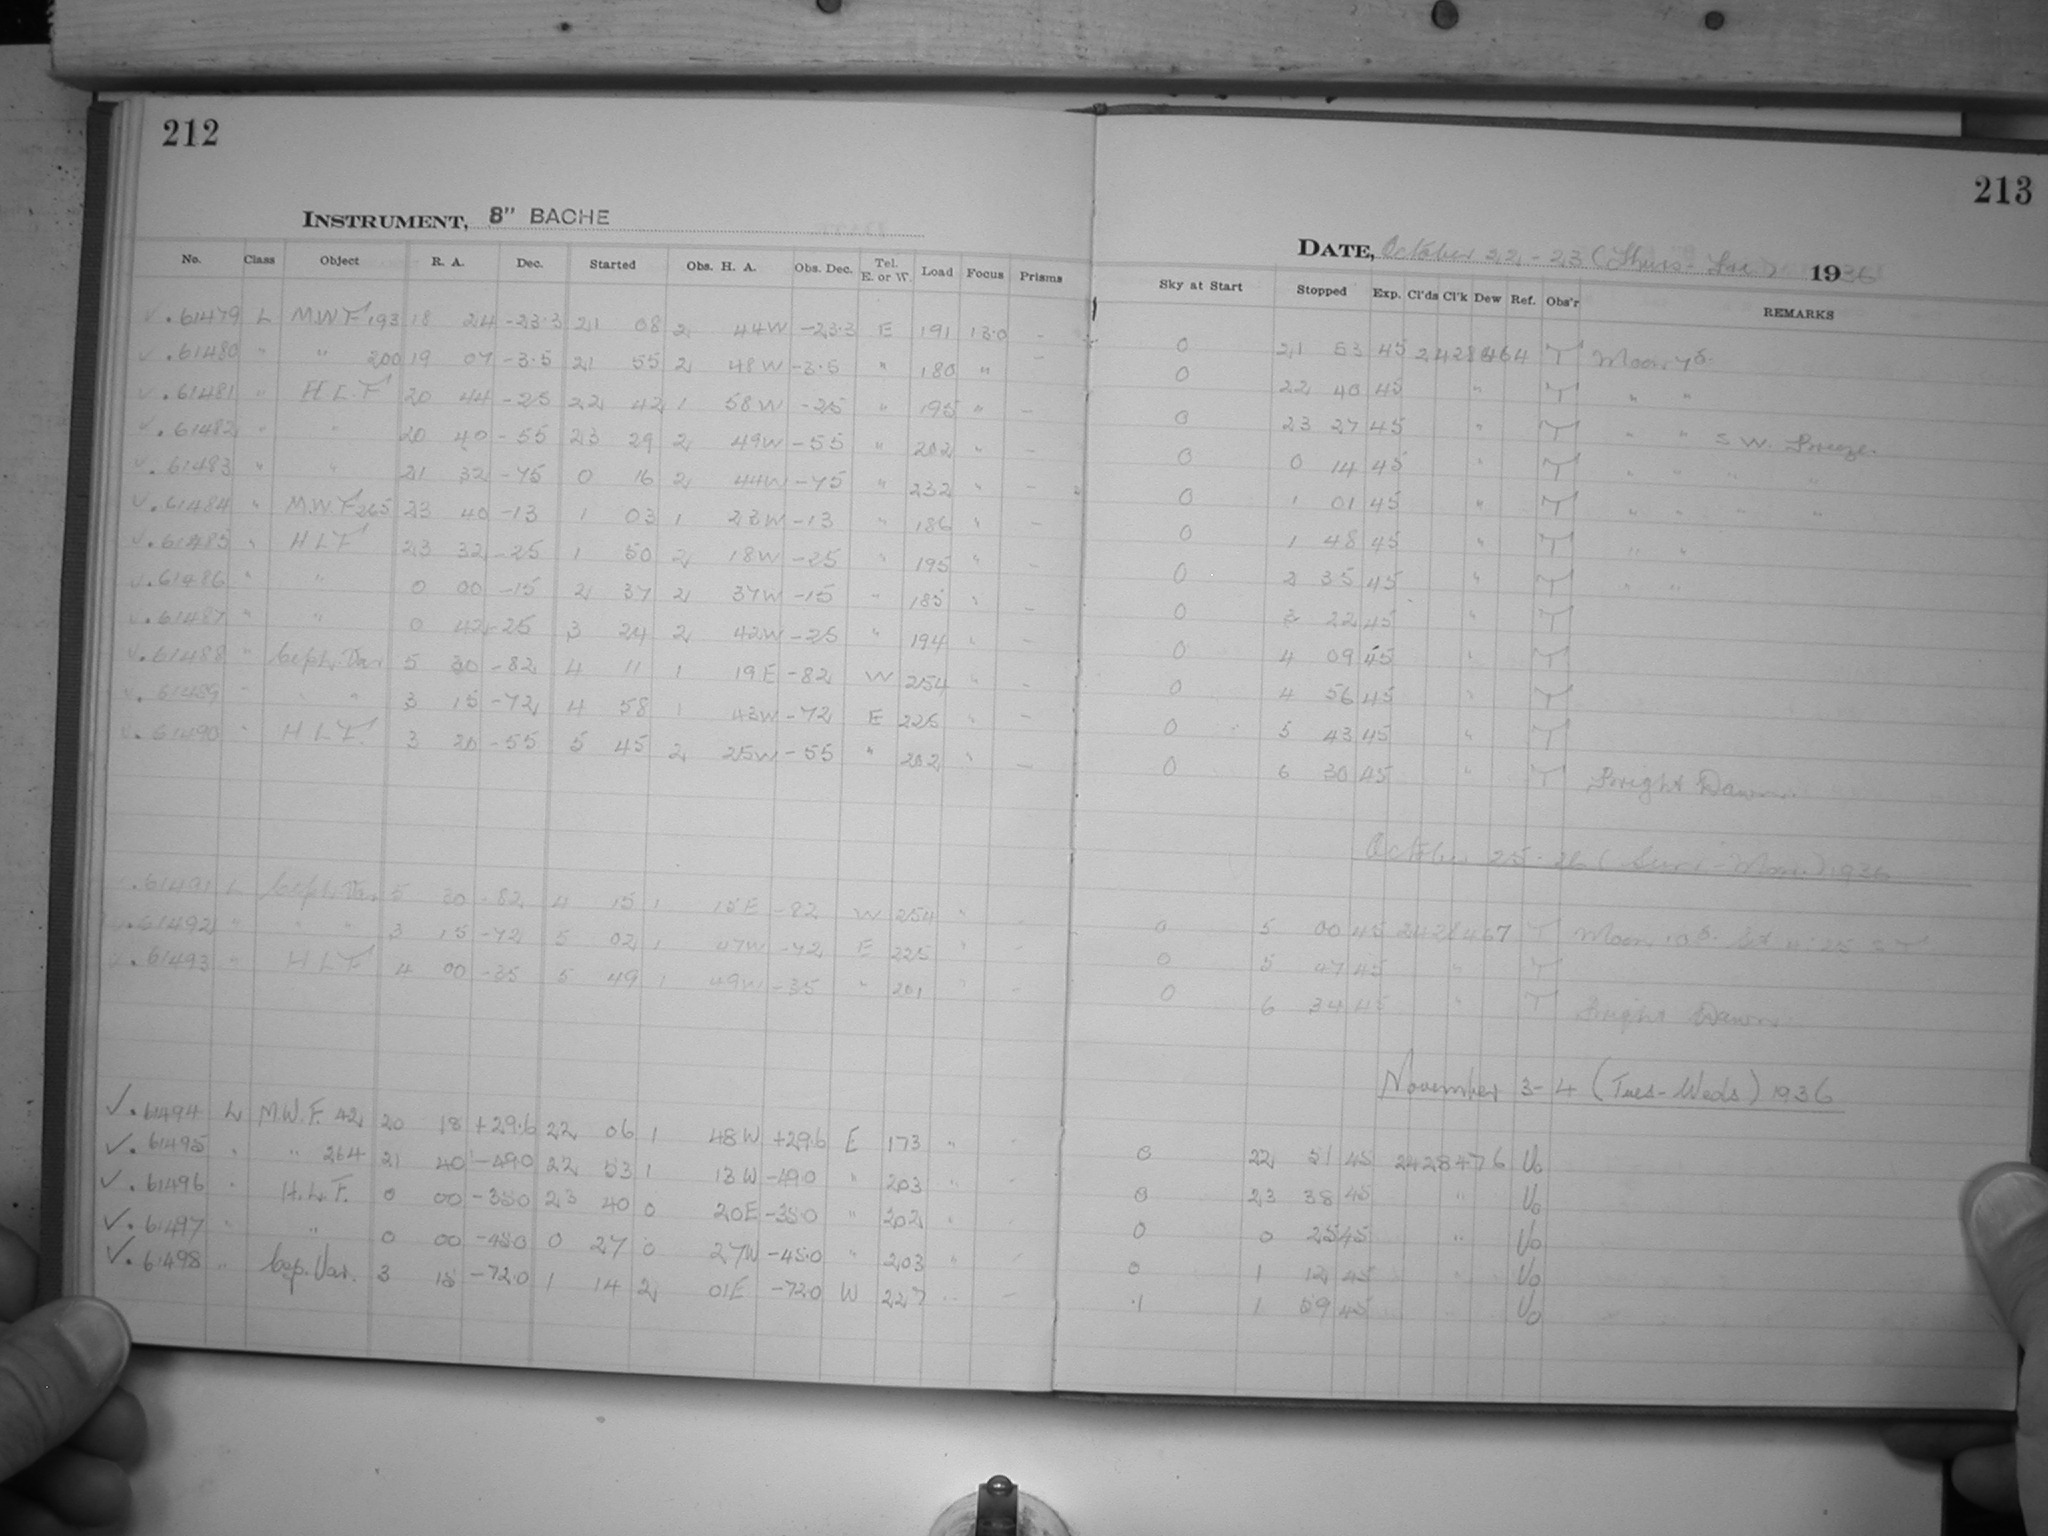 212
INSTRUMENT, 8" BACHE
No. Class Object R. A. Dec. Started Obs. H. A. Obs. Dec. Tel. E. or W. Load Focus Prisms
√ . 61479 L M.W.F. 193 18 24 -23.3 21 08 2 44W -23.3 E 191 13.0 -
√ . 61480 " " 200 19 07 -3.5 21 55 2 48W -3.5 " 180 " -
√ . 61481 " H L F 20 44 -25 22 42 1 58W -25 " 195 " -
√ . 61482 " " 20 40 -55 23 29 2 49W -55 " 202 " -
√ . 61483 " " 21 32 -75 0 16 2 44W -75 " 232 " -
√ . 61484 " M.W.F 265 23 40 -13 1 03 1 23W -13 " 186 " -
√ . 61485 " H L F 23 32 -25 1 50 2 18W -25 " 195 " -
√ . 61486 " " 0 00 -15 2 37 2 37W -15 " 185 " -
√ . 61487 " " 0 42 -25 3 24 2 42W -25 " 194 " -
√ . 61488 " Ceph. Var 5 30 -82 4 11 1 19E -82 W 254 " -
√ . 61489 " " " 3 15 -72 4 58 1 43W -72 E 225 " -
√ . 61490 " H L F. 3 20 -55 5 45 2 25W -55 " 202 " -
. 61491 L Ceph. Var 5 30 -82 4 15 1 15E -82 W 254 " -
. 61492 " " " 3 15 -72 5 02 1 47W -72 E 225 " -
. 61493 " H L F 4 00 -35 5 49 1 49W -35 " 201 " -
√ . 61494 L M.W.F. 42 20 18 +29.6 22 06 1 48W +29.6 E 173 " -
√ . 61495 " " 264 21 40 -49.0 22 53 1 13W -49.0 " 203 " -
√ . 61496 " H.L.F. 0 00 -35.0 23 40 0 20E -35.0 " 202 " -
√ . 61497 " " 0 00 -45.0 0 27 0 27W -45.0 " 203 " -
√ . 61498 " Cep. Var. 3 15 -72.0 1 14 2 01E -72.0 W 227 " -
213
DATE, October 22-23 (Thurs- Fri) 1936
Sky at Start Stopped Exp. Cl'ds Cl'k Dew Ref. Obs'r REMARKS
0 21 53 45 2428464 T Moon 7d.
0 22 40 45 " T " "
0 23 27 45 " T " " S W. Breeze.
0 0 14 45 " T " " " "
0 1 01 45 " T " " " "
0 1 48 45 " T " "
0 2 35 45 " T " "
0 3 22 45 " T
0 4 09 45 " T
0 4 56 45 " T
0 5 43 45 " T
0 6 30 45 " T Bright Dawn.
October 25-26 (Sun-Mon.) 1936
0 5 00 45 2428467 T Moon 10d. Set 4:25 S T
0 5 47 45 " T
0 6 34 45 " T Bright Dawn.
November 3-4 (Tues-Weds) 1936
0 22 51 45 2428476 Uo
0 23 38 45 " Uo
0 0 25 45 " Uo
0 1 12 45 " Uo
.1 1 59 45 " Uo